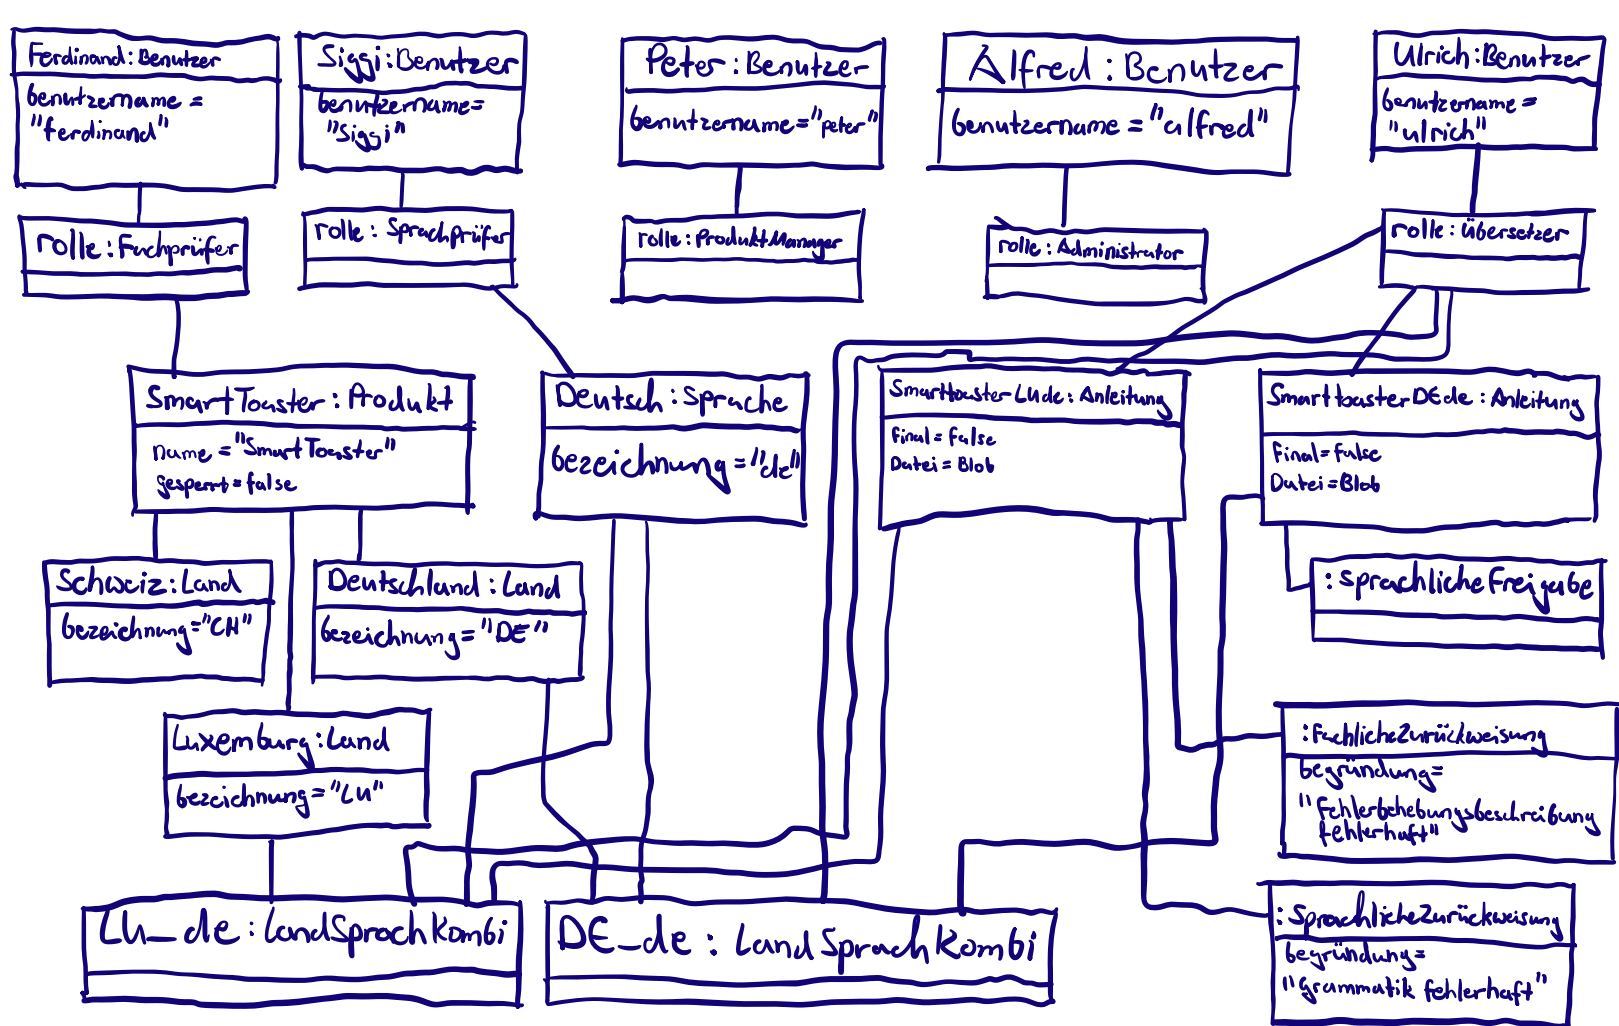 Ferdinand:Benutzer
benutzername =
"ferdinand"
Siggi:Benutzer
benutzername=
"Siggi"
Peter:Benutzer
benutzername="peter"
Alfred:Benutzer
benutzername = "alfred"
Ulrich:Benutzer
benutzername =
"ulrich"
rolle:Fachprüfer
rolle: Sprachprüfer
rolle:ProduktManager
rolle:Administrator
rolle:Übersetzer
SmartToaster:Produkt
name = "SmartToaster"
gesperrt=false
Deutsch:Sprache
bezeichnung="de"
SmarttoasterLUde:Anleitung
Final=False
Datei=Blob
SmarttoasterDEde:Anleitung
Final=False
Datei=Blob
Schweiz:Land
bezeichnung="CH"
Deutschland:Land
bezeichnung="DE"
:SprachlicheFreigabe
Luxemburg:Land
bezeichnung="LU"
:FachlicheZurückweisung
begründung=
"Fehlerbehebungsbeschreibung
fehlerhaft"
LU_de:LandSprachKombi
DE_de: LandSprachKombi
:SprachlicheZurückweisung
begründung=
"Grammatik fehlerhaft"